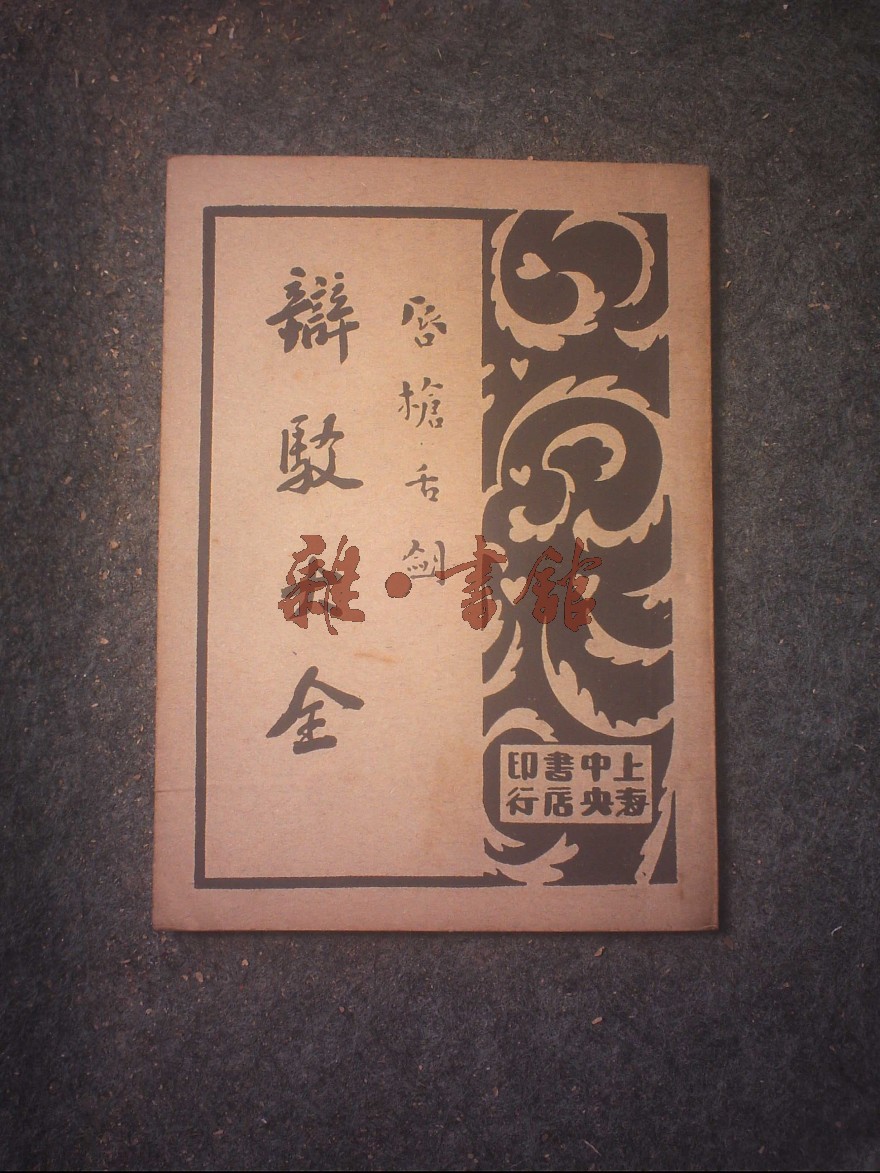 唇槍·舌劍
辯駁大全
上海
中央
書店
印行
雜●書館